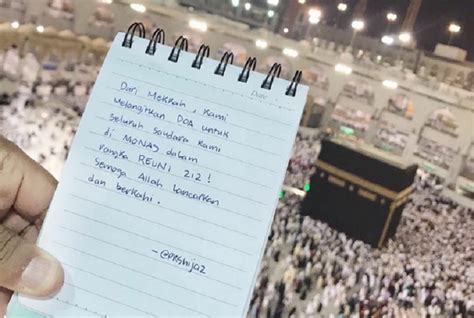 Date:
Dari MEKKAH, Kami
melangitkan DOA untuk
seluruh saudara kami
di MONAS dalam
rangka REUNI 212!
Semoga Allah lancarkan
dan berkahi.
-@PKShijaz